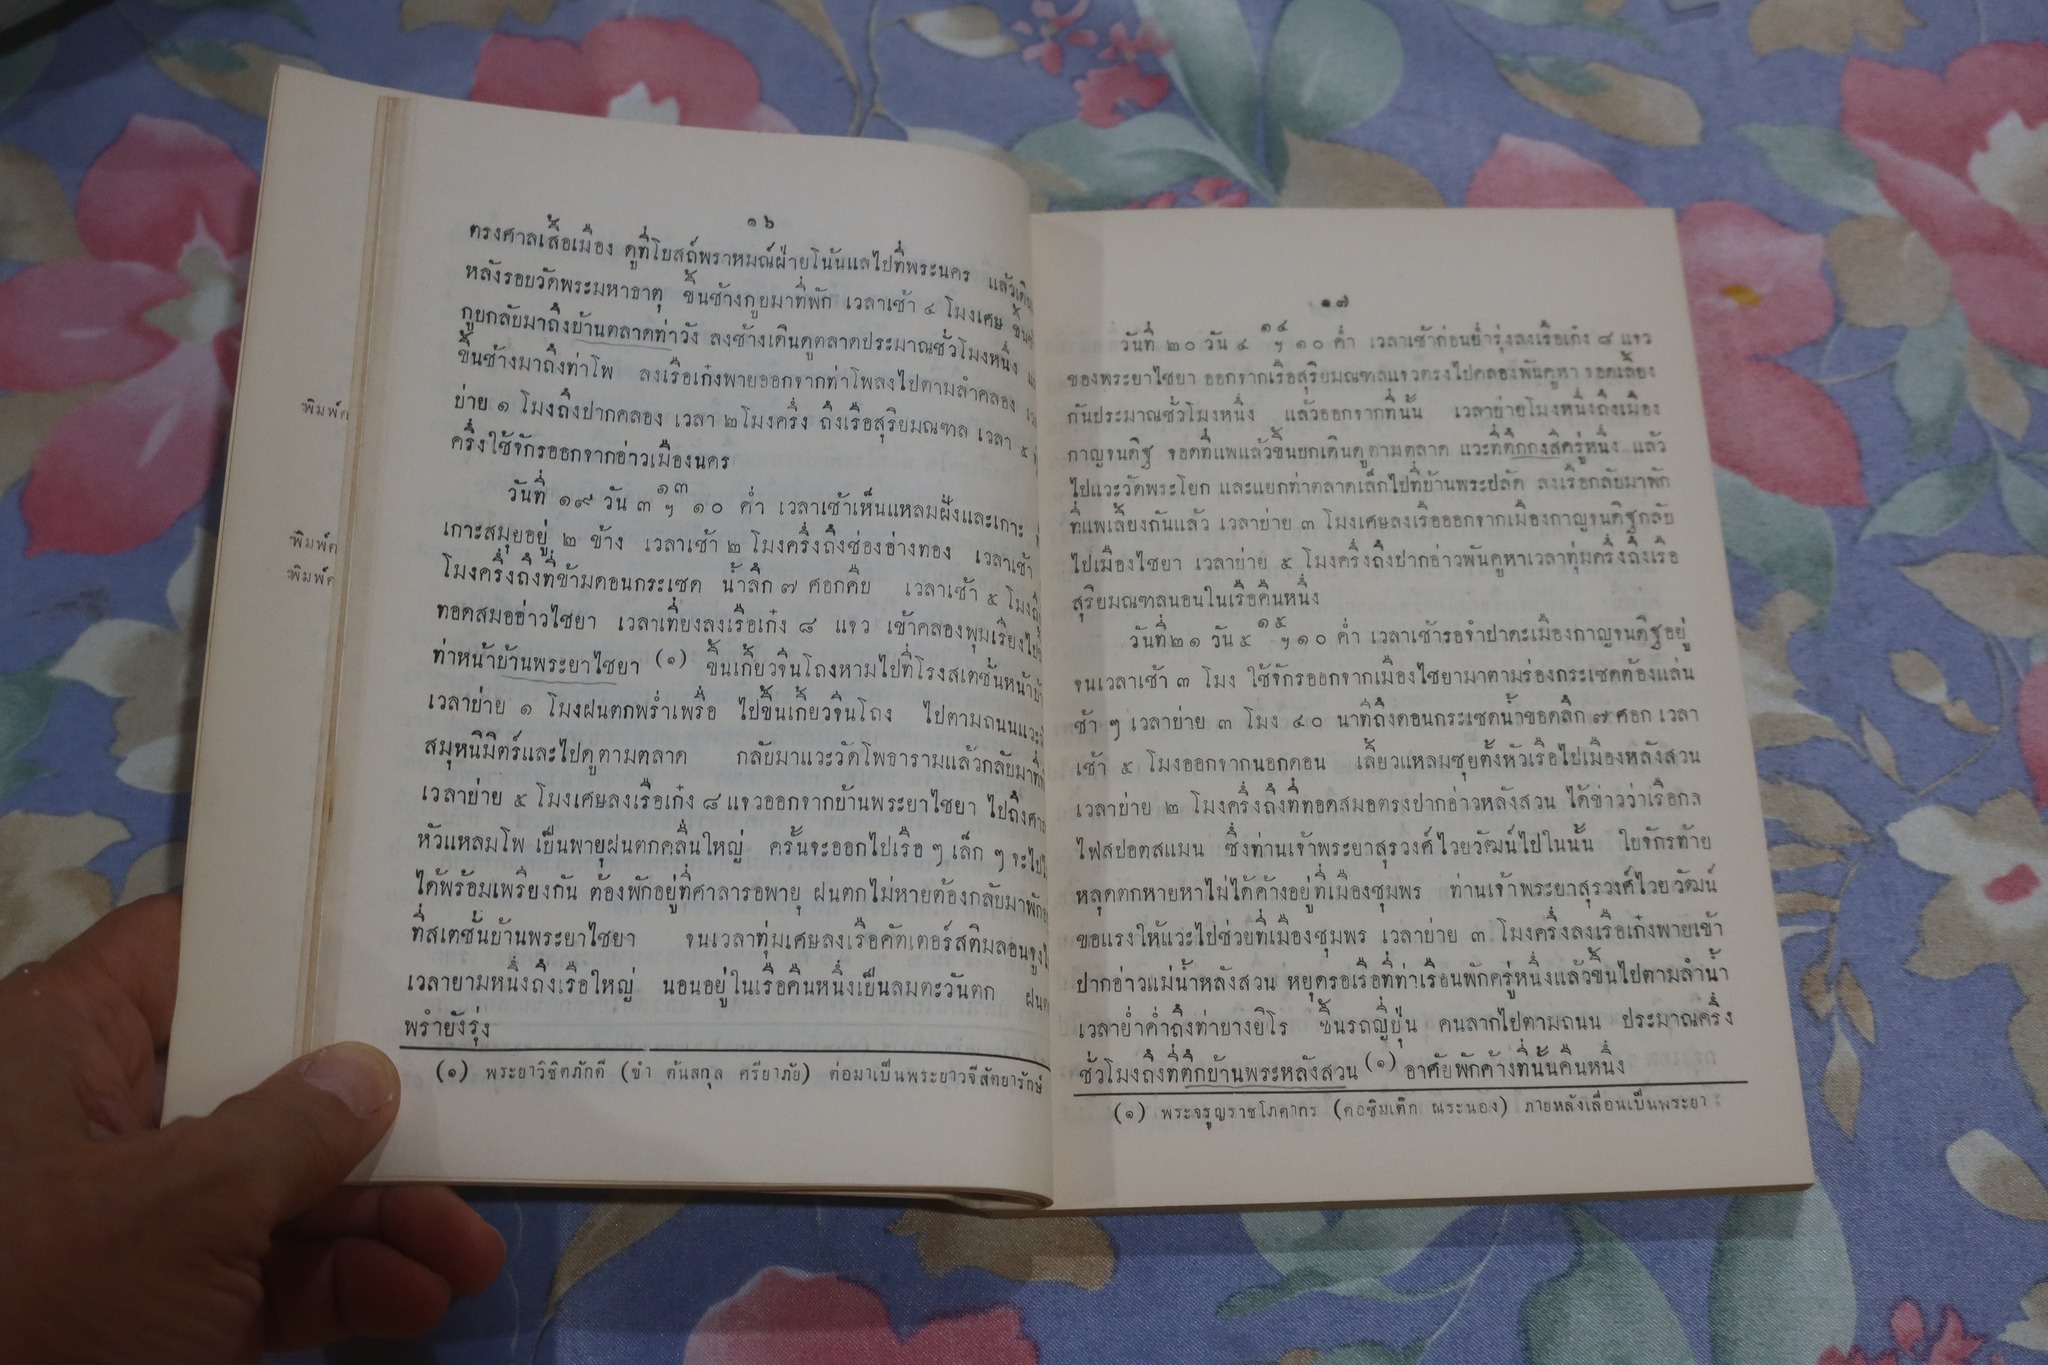 ๑๖
ตรงศาลเสื้อเมือง ดูที่โบสถ์พราหมณ์ฝ่ายโน้นแลไปที่พระนคร แล้วเดิน
หลังรอบวัดพระมหาธาตุ ขึ้นช้างกูบมาที่พัก เวลาเช้า ๔ โมงเศษ ขึ้น
กูบกลับมาถึงบ้านตลาดท่าวัง ลงช้างเดินดูตลาดประมาณชั่วโมงหนึ่ง
ขึ้นช้างมาถึงท่าโพ ลงเรือเก๋งพายออกจากท่าโพลงไปตามลำคลอง
บ่าย ๑ โมงถึงปากคลอง เวลา ๒ โมงครึ่ง ถึงเรือสุริยมณฑล เวลา ๕
ครึ่งใช้จักรออกจากอ่าวเมืองนคร
วันที่ ๑๙ วัน ๓ ๑๓ฯ ๑๐ ค่ำ เวลาเช้าเห็นแหลมฝั่งและเกาะ
เกาะสมุยอยู่ ๒ ข้าง เวลาเช้า ๒ โมงครึ่งถึงช่องอ่างทอง เวลาเช้า
โมงครึ่งถึงที่ข้ามดอนกระเซด น้ำลึก ๗ ศอกคืบ เวลาเช้า ๕ โมง
ทอดสมออ่าวไชยา เวลาเที่ยงลงเรือเก๋ง ๘ แจว เข้าคลองพุมเรียงไป
ท่าหน้าบ้านพระยาไชยา (๑) ขึ้นเกี้ยวจีนโถงหามไปที่โรงสเตชั่นหน้า
เวลาบ่าย ๑ โมงฝนตกพร่ำเพรื่อ ไปขึ้นเกี้ยวจีนโถง ไปตามถนนแวะ
สมุหนิมิตร์และไปดูตามตลาด กลับมาแวะวัดโพธารามแล้วกลับมาที่
เวลาบ่าย ๕ โมงเศษลงเรือเก๋ง ๘ แจวออกจากบ้านพระยาไชยา ไปถึงศา
หัวแหลมโพ เป็นพายุฝนตกคลื่นใหญ่ ครั้นจะออกไปเรือ ๆ เล็ก ๆ จะไป
ได้พร้อมเพรียงกัน ต้องพักอยู่ที่ศาลารอพายุ ฝนตกไม่หายต้องกลับมาพัก
ที่สเตชั่นบ้านพระยาไชยา จนเวลาทุ่มเศษลงเรือคัตเตอร์สติมลอนจูง
เวลายามหนึ่งถึงเรือใหญ่ นอนอยู่ในเรือคืนหนึ่งเป็นลมตะวันตก ฝน
พรำยังรุ่ง
(๑) พระยาวิชิตภักดี (ขำ ต้นสกุล ศรียาภัย) ต่อมาเป็นพระยาวจีสัตยารักษ์
พิมพ์
พิมพ์
พิมพ์
๑๗
วันที่ ๒๐ วัน ๔ ๑๔ฯ ๑๐ ค่ำ เวลาเช้าก่อนย่ำรุ่งลงเรือเก๋ง ๘ แจว
ของพระยาไชยา ออกจากเรือสุริยมณฑลแจวตรงไปคลองพันคูหา จอดเลื้อง
กันประมาณชั่วโมงหนึ่ง แล้วออกจากที่นั้น เวลาบ่ายโมงหนึ่งถึงเมือง
กาญจนดิฐ จอดที่แพแล้วขึ้นบกเดินดูตามตลาด แวะที่ตึกกงสีครู่หนึ่ง แล้ว
ไปแวะวัดพระโยก และแยกท่าตลาดเล็กไปที่บ้านพระปลัด ลงเรือกลับมาพัก
ที่แพเลี้ยงกันแล้ว เวลาบ่าย ๓ โมงเศษลงเรือออกจากเมืองกาญจนดิฐกลับ
ไปเมืองไชยา เวลาบ่าย ๕ โมงครึ่งถึงปากอ่าวพันคูหาเวลาทุ่มครึ่งถึงเรือ
สุริยมณฑลนอนในเรือคืนหนึ่ง
วันที่ ๒๑ วัน ๕ ๑๕ฯ ๑๐ ค่ำ เวลาเช้ารอจำปาตะเมืองกาญจนดิฐอยู่
จนเวลาเช้า ๓ โมง ใช้จักรออกจากเมืองไชยามาตามร่องกระเซดต้องแล่น
ช้า ๆ เวลาบ่าย ๓ โมง ๔๐ นาทีถึงดอนกระเซดน้ำขอดลึก ๗ ศอก เวลา
เช้า ๕ โมงออกจากนอกดอน เลี้ยวแหลมซุยตั้งหัวเรือไปเมืองหลังสวน
เวลาบ่าย ๒ โมงครึ่งถึงที่ทอดสมอตรงปากอ่าวหลังสวน ได้ข่าวว่าเรือกล
ไฟสปอตสแมน ซึ่งท่านเจ้าพระยาสุรวงศ์ไวยวัฒน์ไปในนั้น ใบจักรท้าย
หลุดตกหายหาไม่ได้ค้างอยู่ที่เมืองชุมพร ท่านเจ้าพระยาสุรวงศ์ไวยวัฒน์
ขอแรงให้แวะไปช่วยที่เมืองชุมพร เวลาบ่าย ๓ โมงครึ่งลงเรือเก๋งพายเข้า
ปากอ่าวแม่น้ำหลังสวน หยุดรอเรือที่ท่าเรือนพักครู่หนึ่งแล้วขึ้นไปตามลำน้ำ
เวลาย่ำค่ำถึงท่ายางยิโร ขึ้นรถญี่ปุ่น คนลากไปตามถนน ประมาณครึ่ง
ชั่วโมงถึงที่ตึกบ้านพระหลังสวน (๑) อาศัยพักค้างที่นั้นคืนหนึ่ง
(๑) พระจรูญราชโภคากร (คอซิมเต๊ก ณระนอง) ภายหลังเลื่อนเป็นพระยา